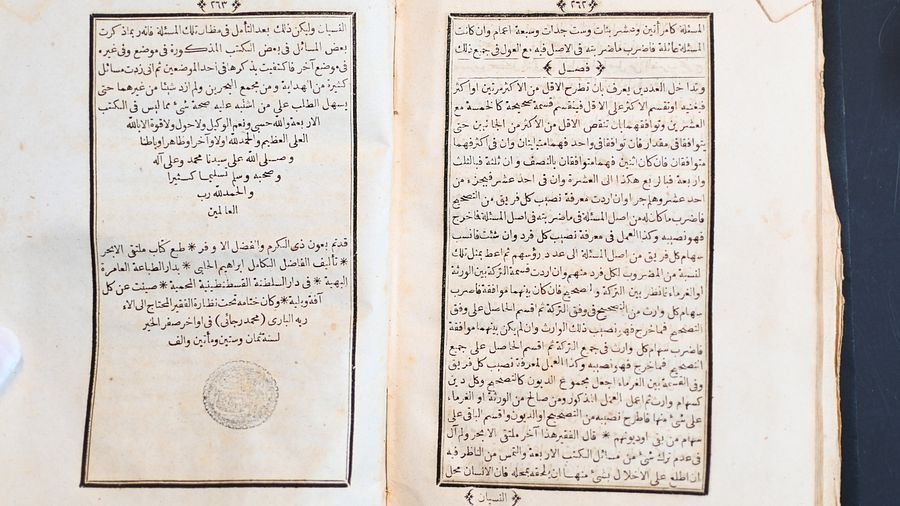 ٢٦٢
المسئلة كامرأتين وعشر بنات وست جدات وسبعة اعمام وان كانت
المسئلة عائلة فاضرب ماضربته فى الاصل فيه مع العول فى جميع ذلك
فصل
وتداخل العددين يعرف بان تطرح الاقل من الاكثر مرتين او اكثر
فيفنيه او تقسم الاكثر على الاقل فينقسم قسمة صحيحة كالخمسة مع
العشرين وتوافقهما بان تنقص الاقل من الاكثر من الجانبين حتى
يتوافقا فى مقدار فان توافقا فى واحد فهما متباينان وان فى اكثر فهما
متوافقان فان كان اثنين فهما متوافقان بالنصف وان ثلثة فبالثلث
واربعة فبالربع هكذا الى العشرة وان فى احد عشر فبجزء من
احد عشر وهلم جرا وان اردت معرفة نصيب كل فريق من التصحيح
فاضرب ما كان له من اصل المسئلة فى ماضربته فى اصل المسئلة فاخرج
فهو نصيبه وكذا العمل فى معرفة نصيب كل فرد وان شئت فانسب
سهام كل فريق من اصل المسئلة الى عدد رؤسهم ثم اعط بمثل تلك
النسبة من المضروب لكل فرد منهم وان اردت قسمة التركة بين الورثة
او الغرماء فانظر بين التركة والتصحيح فان كان بينهما موافقة فاضرب
سهام كل وارث من التصحيح فى وفق التركة ثم اقسم الحاصل على وفق
التصحيح فما خرج فهو نصيب ذلك الوارث وان لم يكن بينهما موافقة
فاضرب سهام كل وارث فى جميع التركة ثم اقسم الحاصل على جميع
التصحيح فما خرج فهو نصيبه وكذا العمل لمعرفة نصيب كل فريق
وفى القسمة بين الغرماء اجعل مجموع الديون كالتصحيح وكل دين
كسهام وارث ثم اعمل العمل المذكور ومن صالح من الورثة او الغرماء
على شئ منها فاطرح نصيبه من التصحيح او الديون واقسم الباقى على
سهام من بقى او ديونهم * قال الفقير هذا آخر ملتقى الابحر ولم آل
فى عدم ترك شئ من مسائل الكتب الاربعة والتمس من الناظر فيه
ان اطلع على الاخلال بشئ منها ان يلحقه بمحله فان الانسان محل
النسيان
٢٦٣
النسيان وليكن ذلك بعد التأمل فى مظان تلك المسئلة فانه ربما ذكرت
بعض المسائل فى بعض الكتب المذكورة فى موضع وفى غيره
فى موضع آخر فاكتفيت بذكرها فى احد الموضعين ثم انى زدت مسائل
كثيرة من الهداية ومن مجمع البحرين ولم ازد شيئا من غيرهما حتى
يسهل الطلب على من اشتبه عليه صحة شئ مما ليس فى الكتب
الاربعة والله حسبى ونعم الوكيل ولاحول ولاقوة الا بالله
العلى العظيم والحمد لله اولا وآخرا وظاهرا وباطنا
وصلى الله على سيدنا محمد وعلى آله
وصحبه وسلم تسليما كثيرا
والحمد لله رب
العالمين
قد تم بعون ذى الكرم والفضل الاوفر * طبع كتاب ملتقى الابحر
* تأليف الفاضل الكامل ابراهيم الحلبى * بدار الطباعة العامرة
البهية * فى دار السلطنة القسطنطينية المحمية * صينت عن كل
آفة وبلية * وكان ختامه تحت نظارة الفقير المحتاج الى آلاء
ربه البارى (محمد رجائى) فى اواخر صفر الخير
لسنة ثمان وستين ومأتين والف